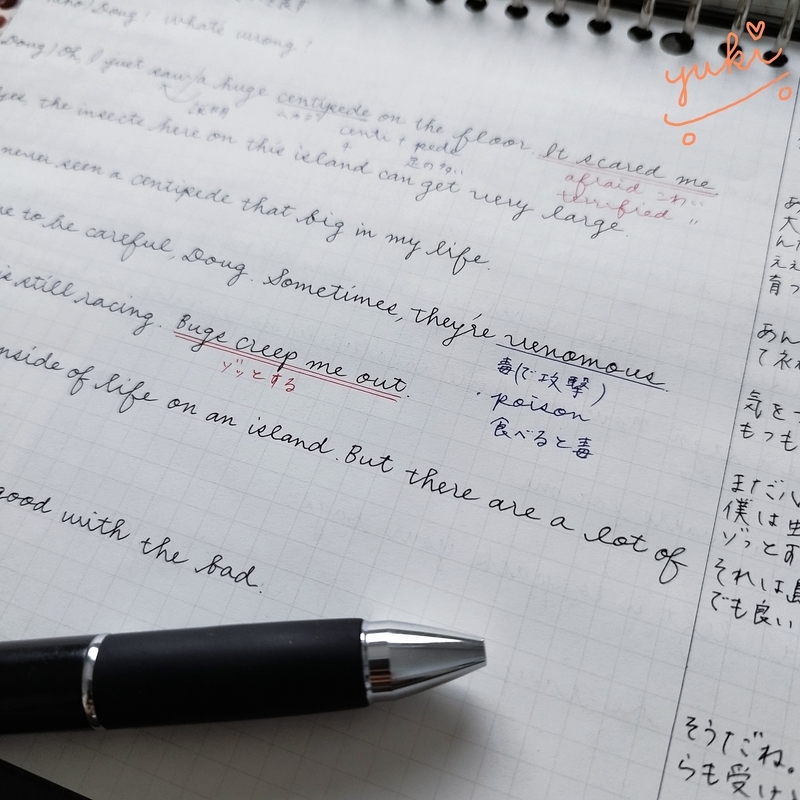 yuki
Doug? what's wrong?
Doug) Oh, I just saw a huge centipede on the floor. It scared me
centi + pede
足の多い
afraid こわい
terrified 〃
the insects here on this island can get very large.
never seen a centipede that big in my life.
to be careful, Doug. Sometimes, they're venomous.
毒(で攻撃)
poison
食べると毒
still racing. Bugs creep me out.
ゾッとする
of life on an island. But there are a lot of
good with the bad.
あん
て
気を
もっも
まだ
僕は
ゾッと
それは島
でも良い
そうだね。
らも受け